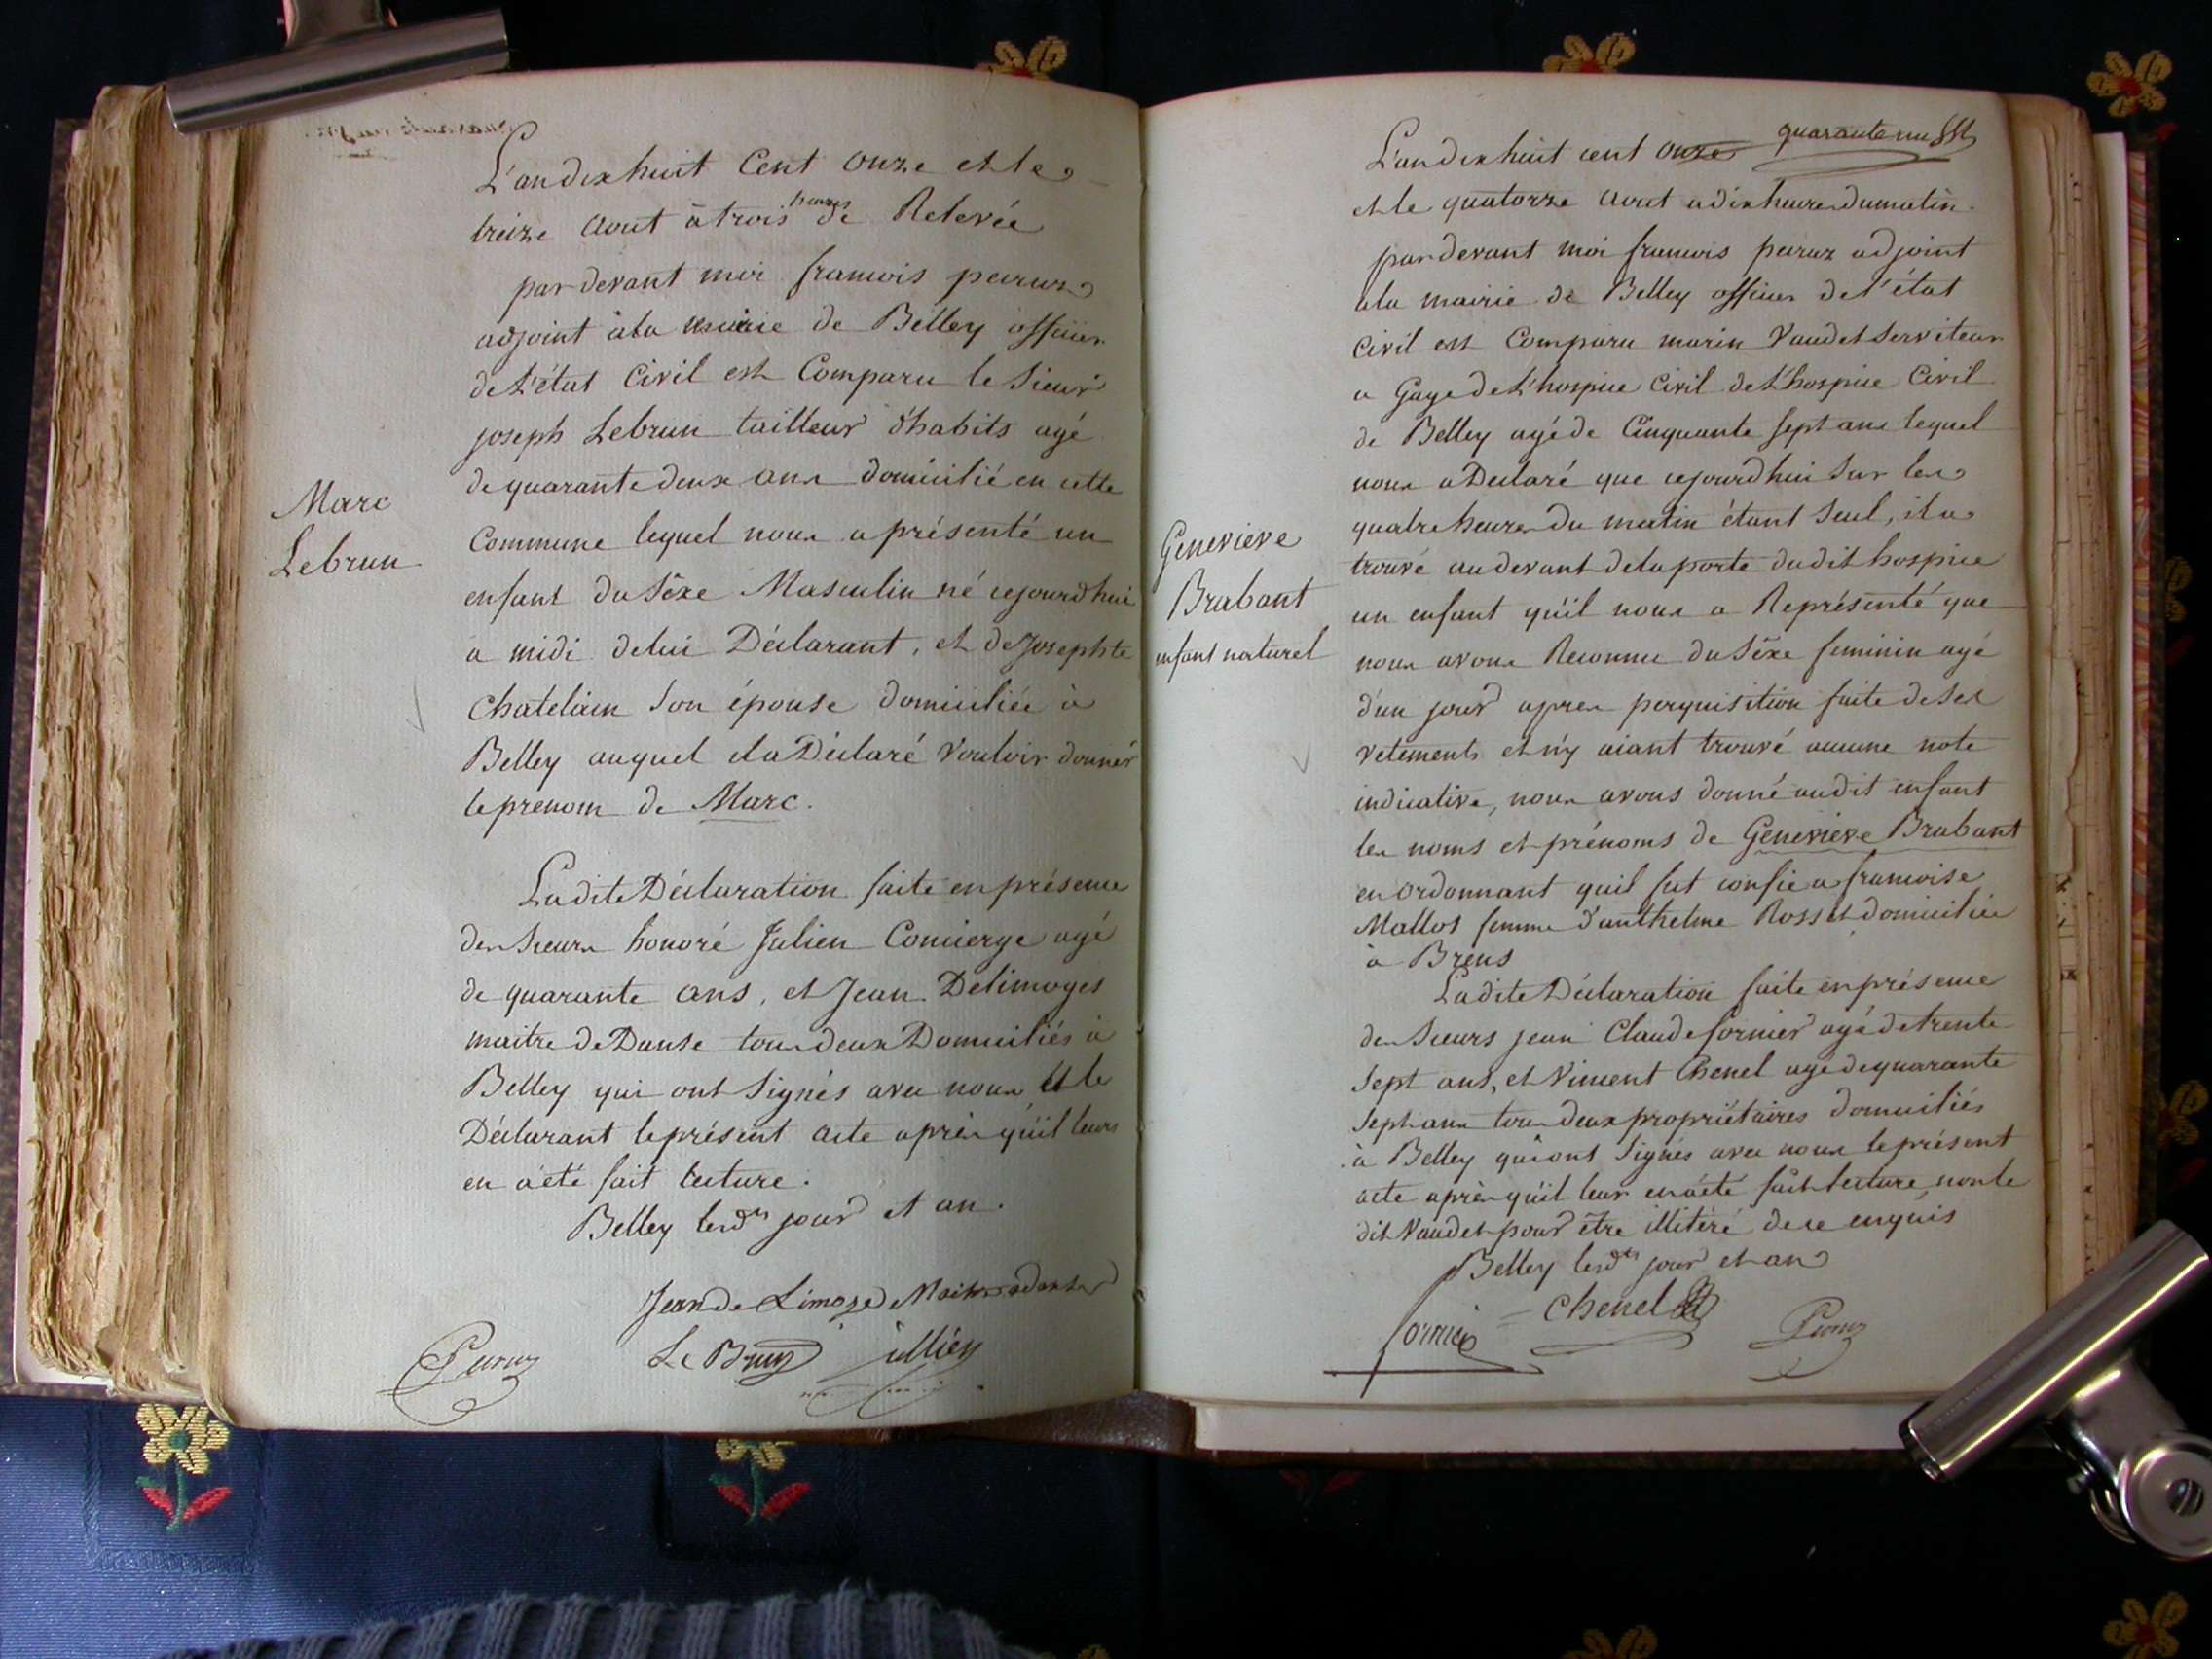 L'an dix huit Cent onze et le
treize aout à trois heures de Relevée
par devant moi francois peruz
adjoint à la mairie de Belley officier
de L'état Civil est Comparu le Sieur
joseph Lebrun tailleur d'habits agé
de quarante deux ans domicilié en cette
Marc
Lebrun
Commune lequel nous a présenté un
enfant du Sèxe Masculin né cejourdhui
a midi de lui Déclarant, et de Josephte
Chatelain Son épouse domiciliée à
Belley auquel il a Déclaré Vouloir donner
le prenom de Marc.
Ladite Déclaration faite en présence
des Sieurs honoré Julien Concierge agé
de quarante ans, et Jean Delimoges
maitre de Danse tous deux Domiciliés à
Belley qui ont Signés avec nous et le
Déclarant le présent acte après qu'il leurs
en a été fait lecture.
Belley lesdts jour et an.
Jean de Limoge Maitre adanser
Peruz Le Brun jullien
quarante
L'an dix huit cent onze
et le quatorze aout a dix heures du matin
par devant moi francois peruz adjoint
a la mairie de Belley officier de l'état
Civil est Comparu marin Vaudet Serviteur
a Gage de L'hospice Civil de L'hospice Civil
de Belley agé de Cinquante Sept ans lequel
nous a Declaré que cejourdhui Sur les
quatre heures du matin étant Seul, il a
trouvé au devant de la porte dudit hospice
Genevieve
Brabant
enfant naturel
un enfant qu'il nous a Représenté que
nous avons Reconnu du Sèxe feminin agé
d'un jour apres perquisition faite de Ses
vetements et n'y aiant trouvé aucune note
indicative, nous avons donné audit enfant
les noms et prénoms de Genevieve Brabant
en ordonnant quil fut confie a francoise
Mallos femme d'anthelme Rosset domiciliée
à Brens
Ladite Déclaration faite en présence
des Sieurs jean Claude fornier agé de trente
Sept ans, et Vincent Chenel agé de quarante
Sept ans tous deux propriétaires domiciliés
à Belley qui ont Signés avec nous le présent
acte après qu'il leur en a été fait lecture, non le
dit Vaudet pour être illitéré de ce enquis
Belley lesdts jour et an
Chenel
fornier Peruz